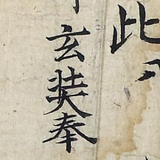 此
玄奘奉